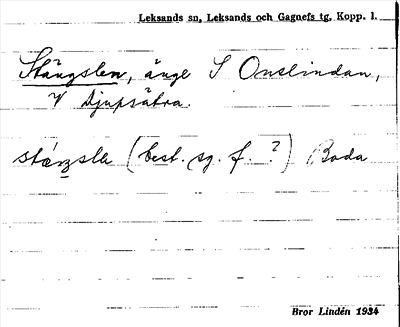 Leksands sn, Leksands och Gagnefs tg, Kopp. l.
Stängslen, änge S Onslindan,
V Djupsätra.
(best. sg. f. ?) Boda
Bror Lindén 1934